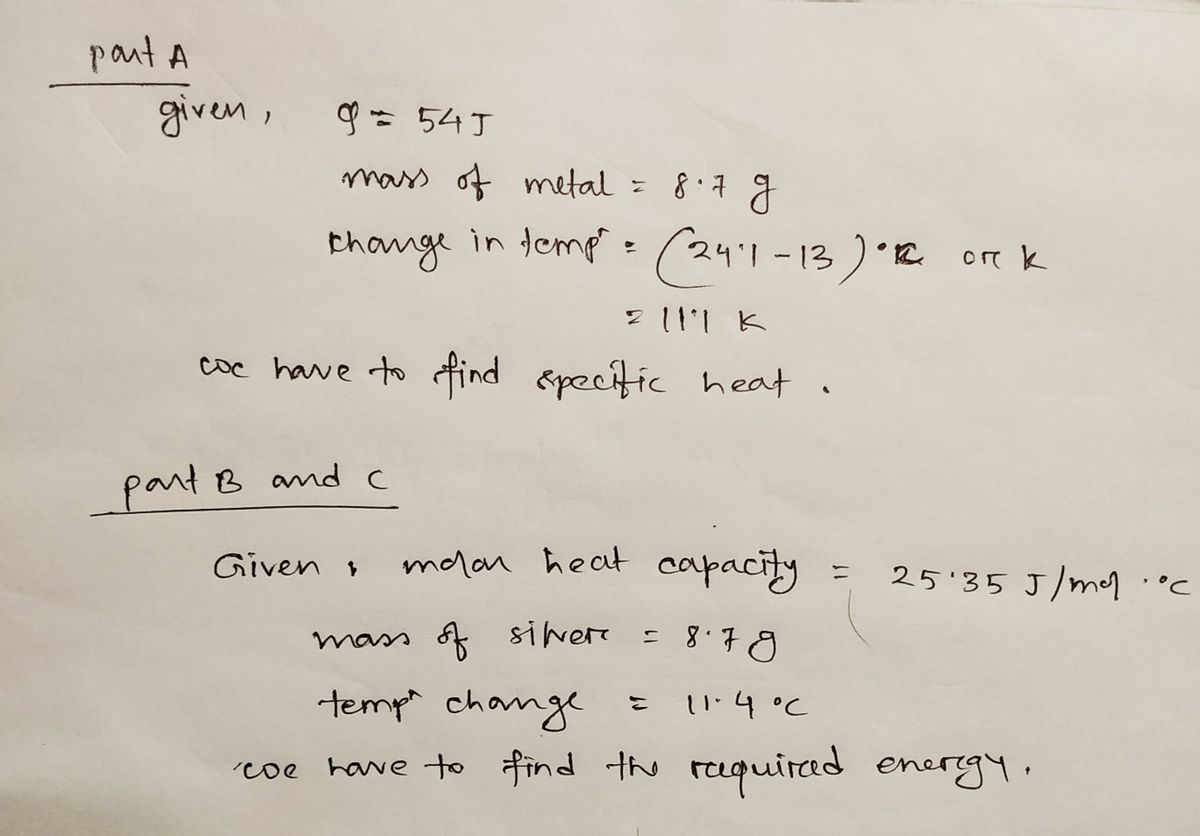 part A
given, q = 54 J
mass of metal = 8.7 g
change in tempr = (24.1 - 13) °C or K
= 11.1 K
we have to find specific heat.
part B and C
Given, molar heat capacity = 25.35 J/mol.°C
mass of silver = 8.7 g
tempr change = 11.4 °C
we have to find the required energy.